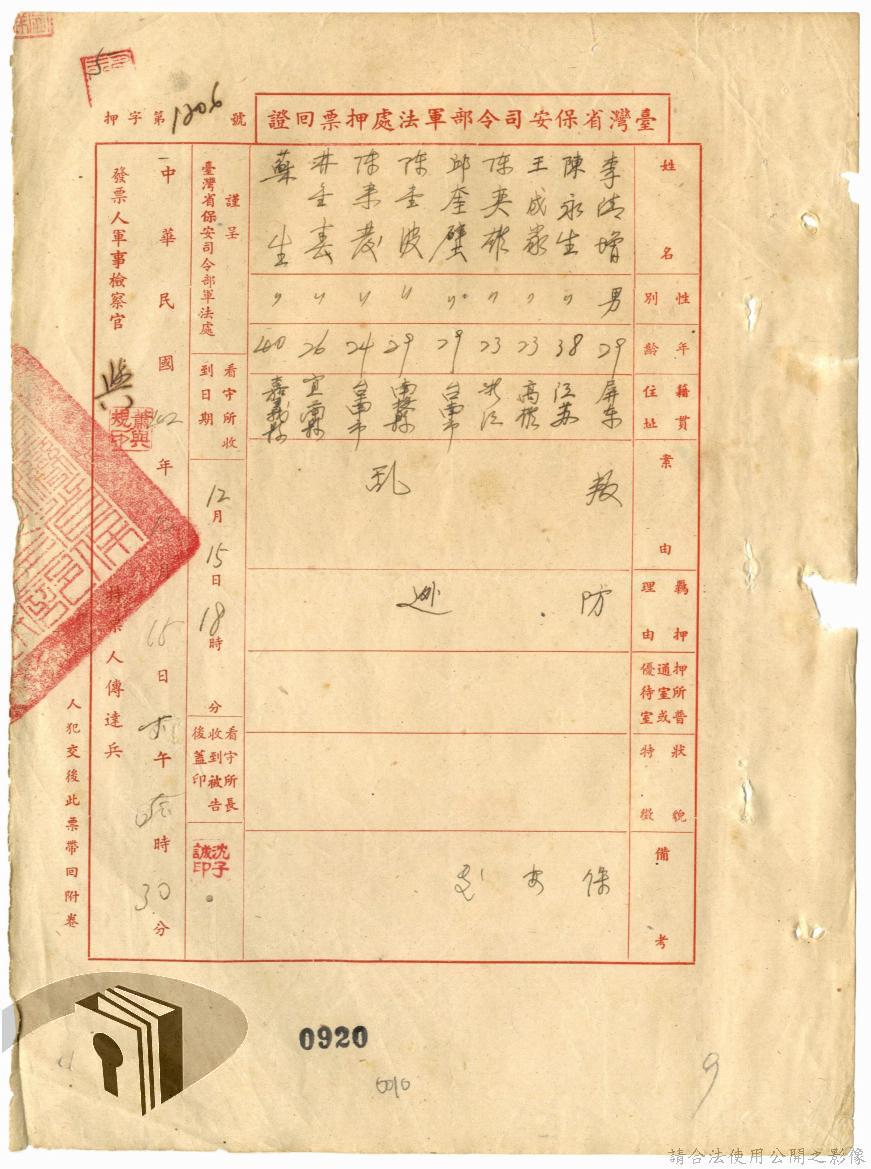 臺灣省保安司令部軍法處押票回證
押字第1206號
姓名 李清增 陳永生 王成 陳英 邱奎璧 陳奎波 陳来 洪金春 蘇生
性別 男 〃 〃 〃 〃 〃 〃 〃 〃
年齡 29 38 23 23 29 29 24 26 40
籍貫住址 屏东 江苏 高 浙江 台南市 台南市 宜 嘉義縣
案由 叛乱
羈押理由 防逃
押所普通室或優待室
狀貌特徵
備考 保安
謹呈
臺灣省保安司令部軍法處
看守所收到日期 12月15日18時 分
看守所長收到被告後蓋印
沈子誠印
中華民國42年 月15日 午 時30分
發票人軍事檢察官
蕭與規印
持票人傳達兵
人犯交後此票帶回附卷
0920
9
請合法使用公開之影像